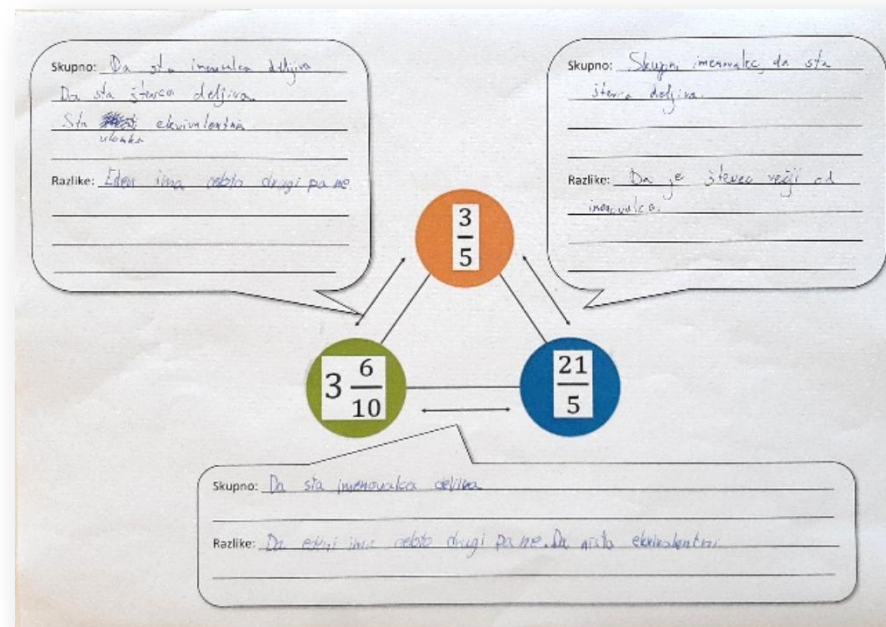 Skupno: Da sta imenovalca deljiva
Da sta števca deljiva
Sta ekvivalentna
ulomka
Razlike: Eden ima celoto drugi pa ne
Skupno: Skupni imenovalec, da sta
števca deljiva.
Razlike: Da je števec večji od
imenovalca.
3
5
3 6
10
21
5
Skupno: Da sta imenovalca deljiva
Razlike: Da edini ima celoto drugi pa ne. Da nista ekvivalentni.